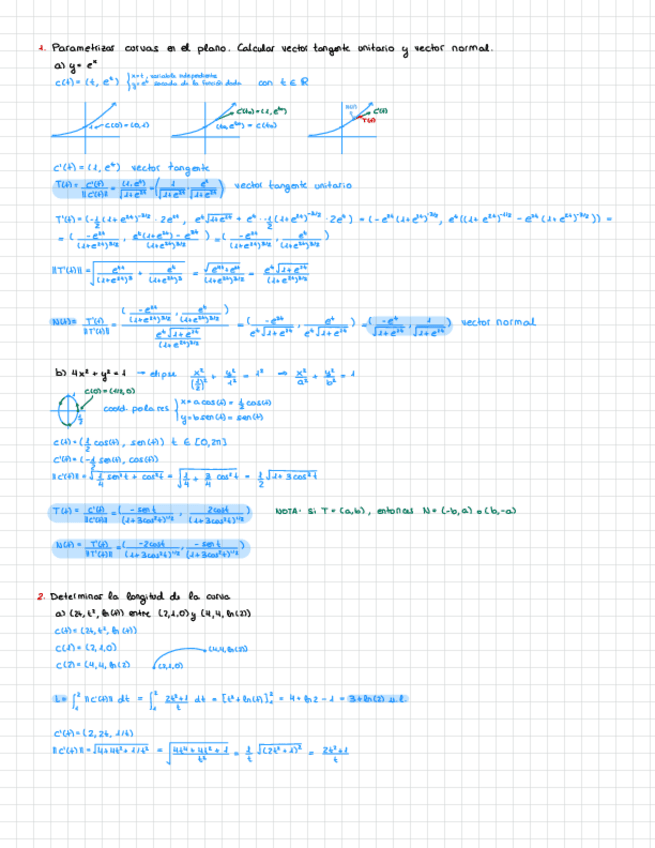 1. Parametrizar curvas en el plano. Calcular vector tangente unitario y vector normal.
a) y = e^x
c(t) = (t, e^t) { x=t, variable independiente con t ∈ ℝ
y=e^t sacada de la función dada
c(0)=(0,1)
c'(t₀)=(1, e^t₀)
(t₀, e^t₀) = c(t₀)
N(t)
c'(t)
T(t)
c'(t) = (1, e^t) vector tangente
T(t) = c'(t)/‖c'(t)‖ = (1, e^t)/√(1+e^2t) = (1/√(1+e^2t), e^t/√(1+e^2t)) vector tangente unitario
T'(t) = (-1/2 (1+e^2t)^-3/2 · 2e^2t, e^t√(1+e^2t) + e^t · -1/2 (1+e^2t)^-3/2 · 2e^t) = (-e^2t (1+e^2t)^-3/2, e^t((1+e^2t)^-1/2 - e^2t (1+e^2t)^-3/2)) =
= (-e^2t/(1+e^2t)^3/2, e^t(1+e^2t) - e^3t/(1+e^2t)^3/2) = (-e^2t/(1+e^2t)^3/2, e^t/(1+e^2t)^3/2)
‖T'(t)‖ = √(e^4t/(1+e^2t)^3 + e^2t/(1+e^2t)^3) = √(e^4t+e^2t)/(1+e^2t)^3/2 = e^t√(1+e^2t)/(1+e^2t)^3/2
N(t) = T'(t)/‖T'(t)‖ = (-e^2t/(1+e^2t)^3/2, e^t/(1+e^2t)^3/2)/(e^t√(1+e^2t)/(1+e^2t)^3/2) = (-e^2t/e^t√(1+e^2t), e^t/e^t√(1+e^2t)) = (-e^t/√(1+e^2t), 1/√(1+e^2t)) vector normal
b) 4x² + y² = 1 → elipse x²/(1/2)² + y²/1² = 1² ⇒ x²/a² + y²/b² = 1
c(0)=(1/2, 0)
coord. polares { x = a cos(t) = 1/2 cos(t)
y = b sen(t) = sen(t)
c(t) = (1/2 cos(t), sen(t)) t ∈ [0, 2π]
c'(t) = (-1/2 sen(t), cos(t))
‖c'(t)‖ = √(1/4 sen²t + cos²t) = √(1/4 + 3/4 cos²t) = 1/2 √(1+3cos²t)
T(t) = c'(t)/‖c'(t)‖ = (-sen t/(1+3cos²t)^1/2, 2cos t/(1+3cos²t)^1/2)
NOTA: Si T = (a,b), entonces N = (-b,a) o (b,-a)
N(t) = T'(t)/‖T'(t)‖ = (-2cos t/(1+3cos²t)^1/2, -sen t/(1+3cos²t)^1/2)
2. Determinar la longitud de la curva
a) (2t, t², ln(t)) entre (2,1,0) y (4,4,ln(2))
c(t) = (2t, t², ln(t))
c(1) = (2,1,0)
c(2) = (4,4,ln(2))
(4,4,ln(2))
(2,1,0)
L = ∫₁² ‖c'(t)‖ dt = ∫₁² 2t²+1/t dt = [t²+ln(t)]₁² = 4+ln2-1 = 3+ln(2) u.l
c'(t) = (2, 2t, 1/t)
‖c'(t)‖ = √(4+4t²+1/t²) = √(4t⁴+4t²+1/t²) = 1/t √(2t²+1)² = 2t²+1/t